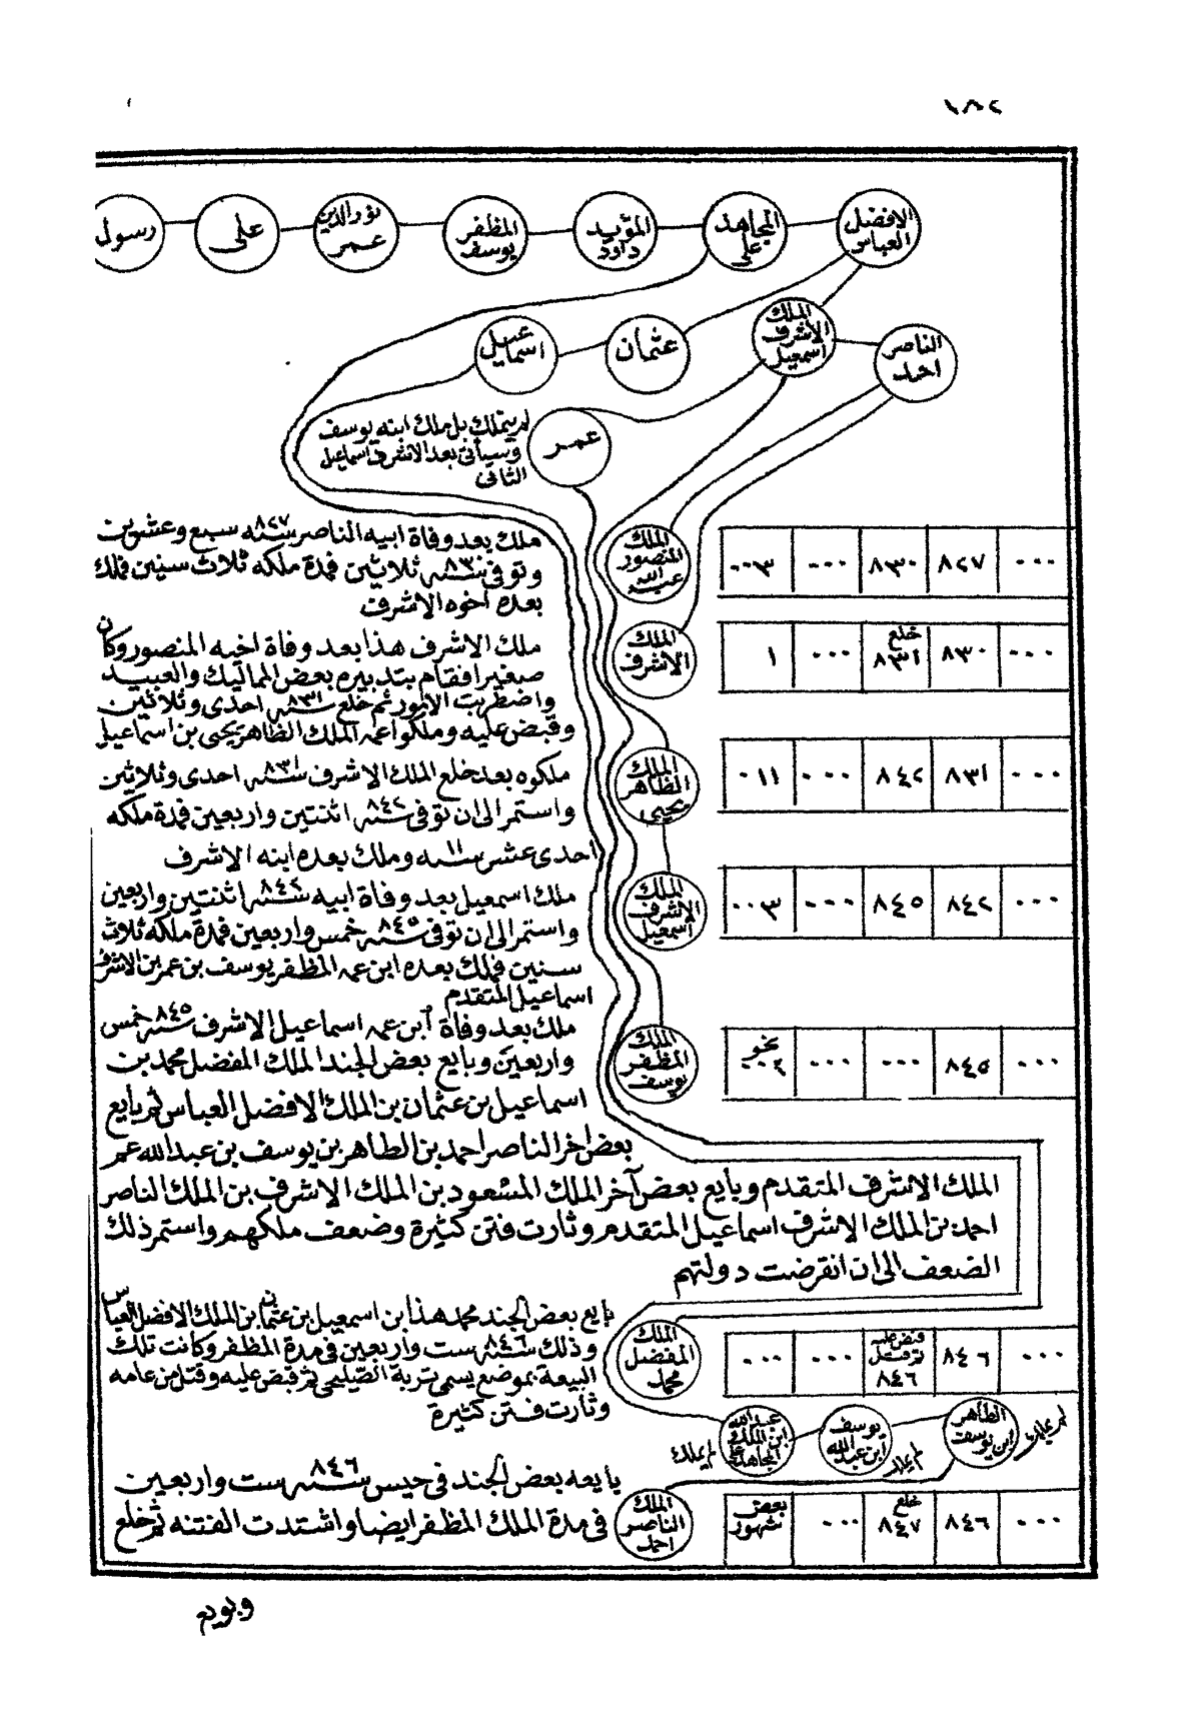 ١٨٢
الافضل العباس
المجاهد على
المؤيد داود
المظفر يوسف
نور الدين عمر
على
رسول
الناصر احمد
الملك الاشرف اسمعيل
عثمان
اسماعيل
عمر
لم يتملك بل ملك ابنه يوسف
وسيأتى بعد الاشرف اسماعيل
الثانى
٠٠٠ ٨٢٧ ٨٣٠ ٠٠٠ ٠٠٣
الملك المنصور عبد الله
ملك بعد وفاة ابيه الناصر سنه ٨٢٧ سبع وعشرين
وتوفى سنه ٨٣٠ ثلاثين فمدة ملكه ثلاث سنين فملك
بعده اخوه الاشرف
٠٠٠ ٨٣٠ خلع ٨٣١ ٠٠٠ ١
الملك الاشرف
ملك الاشرف هذا بعد وفاة اخيه المنصور وكان
صغيرا فقام بتدبيره بعض المماليك والعبيد
واضطربت الامور ثم خلع سنه ٨٣١ احدى وثلاثين
وقبض عليه وملكوا عمه الملك الظاهر يحيى بن اسماعيل
٠٠٠ ٨٣١ ٨٤٢ ٠٠٠ ٠١١
الملك الظاهر يحيى
ملكوه بعد خلع الملك الاشرف سنه ٨٣١ احدى وثلاثين
واستمر الى ان توفى سنه ٨٤٢ اثنتين واربعين فمدة ملكه
احدى عشر سنه ١١ وملك بعده ابنه الاشرف
٠٠٠ ٨٤٢ ٨٤٥ ٠٠٠ ٠٠٣
الملك الاشرف اسمعيل
ملك اسمعيل بعد وفاة ابيه سنه ٨٤٢ اثنتين واربعين
واستمر الى ان توفى سنه ٨٤٥ خمس واربعين فمدة ملكه ثلاث
سنين فملك بعده ابن عمه المظفر يوسف بن عمر بن الاشرف
اسماعيل المتقدم
٠٠٠ ٨٤٥ ٠٠٠ ٠٠٠ نحو ٠٠٢
الملك المظفر يوسف
ملك بعد وفاة ابن عمه اسماعيل الاشرف سنه ٨٤٥ خمس
واربعين وبايع بعض الجند الملك المفضل محمد بن
اسماعيل بن عثمان بن الملك الافضل العباس ثم بايع
بعض اخر الناصر احمد بن الطاهر بن يوسف بن عبد الله عم
الملك الاشرف المتقدم وبايع بعض آخر الملك المسعود بن الملك الاشرف بن الملك الناصر
احمد بن الملك الاشرف اسماعيل المتقدم وثارت فتن كثيرة وضعف ملكهم واستمر ذلك
الضعف الى ان انقرضت دولتهم
٠٠٠ ٨٤٦ قبض عليه ثم قتل ٨٤٦ ٠٠٠ ٠٠٠
الملك المفضل محمد
بايع بعض الجند محمد هذا ابن اسمعيل بن عثمان بن الملك الافضل العباس
وذلك سنه ٨٤٦ ست واربعين فى مدة المظفر وكانت تلك
البيعة بموضع يسمى تربة الصليحى ثم قبض عليه وقتل من عامه
وثارت فتن كثيرة
الطاهر ابن يوسف
لم يملك
يوسف ابن عبد الله
لم يملك
عبد الله ابن الملك المجاهد على
لم يملك
٠٠٠ ٨٤٦ خلع ٨٤٧ ٠٠٠ بعض شهور
الملك الناصر احمد
بايعه بعض الجند فى حيس سنه ٨٤٦ ست واربعين
فى مدة الملك المظفر ايضا واشتدت الفتنه ثم خلع
وبويع